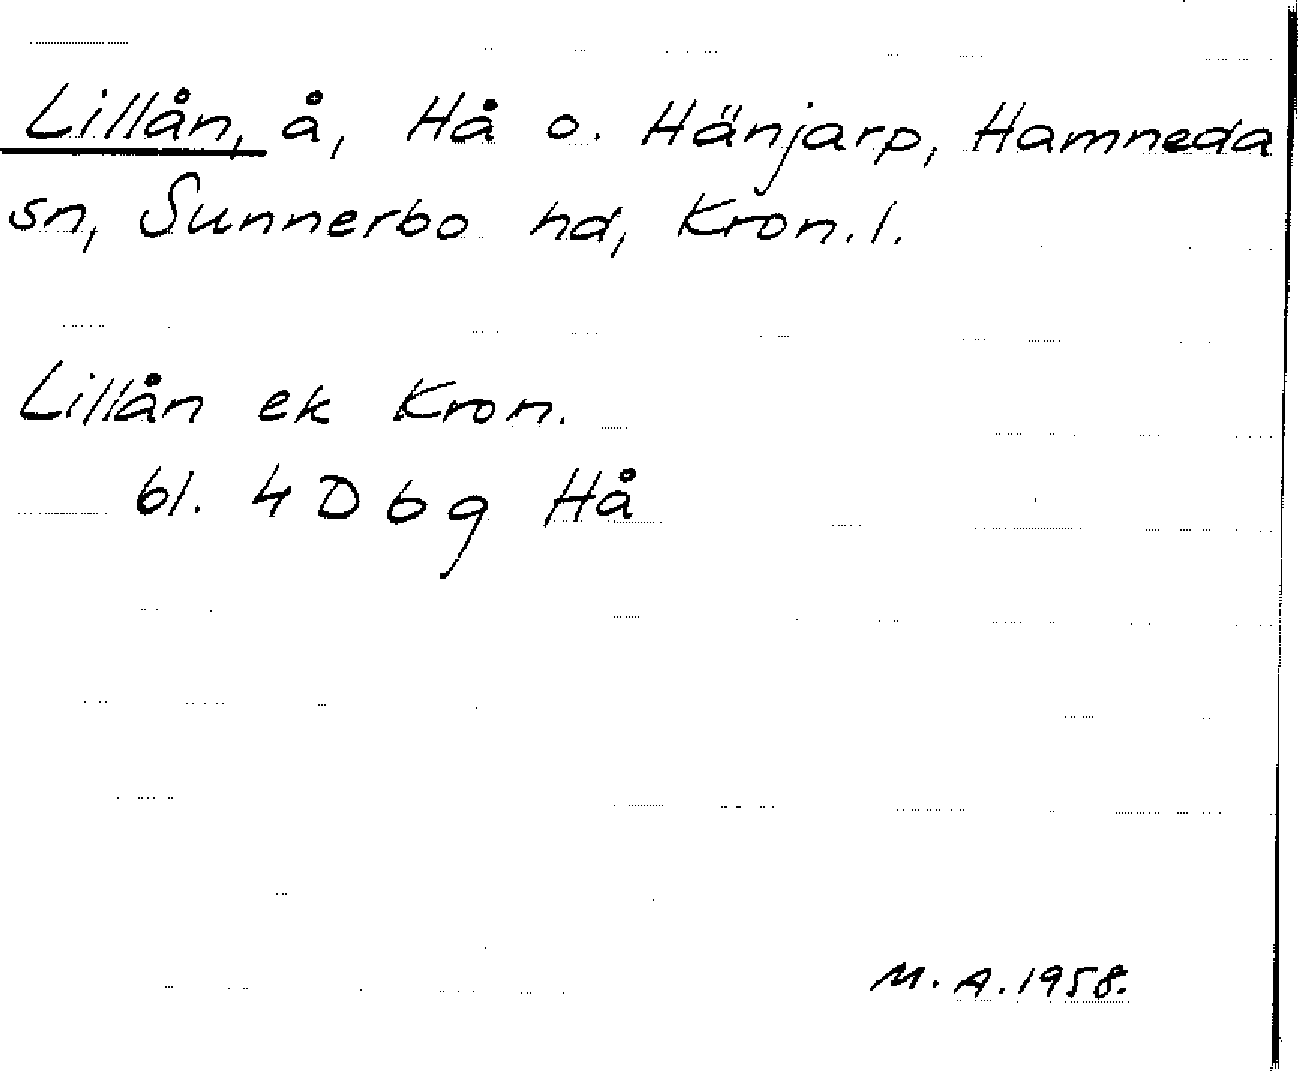 Lillån, å, Hå o. Hänjarp, Hamneda
sn, Sunnerbo hd, Kron.l.
Lillån ek Kron.
bl. 4 D b g Hå
M. A. 1958.